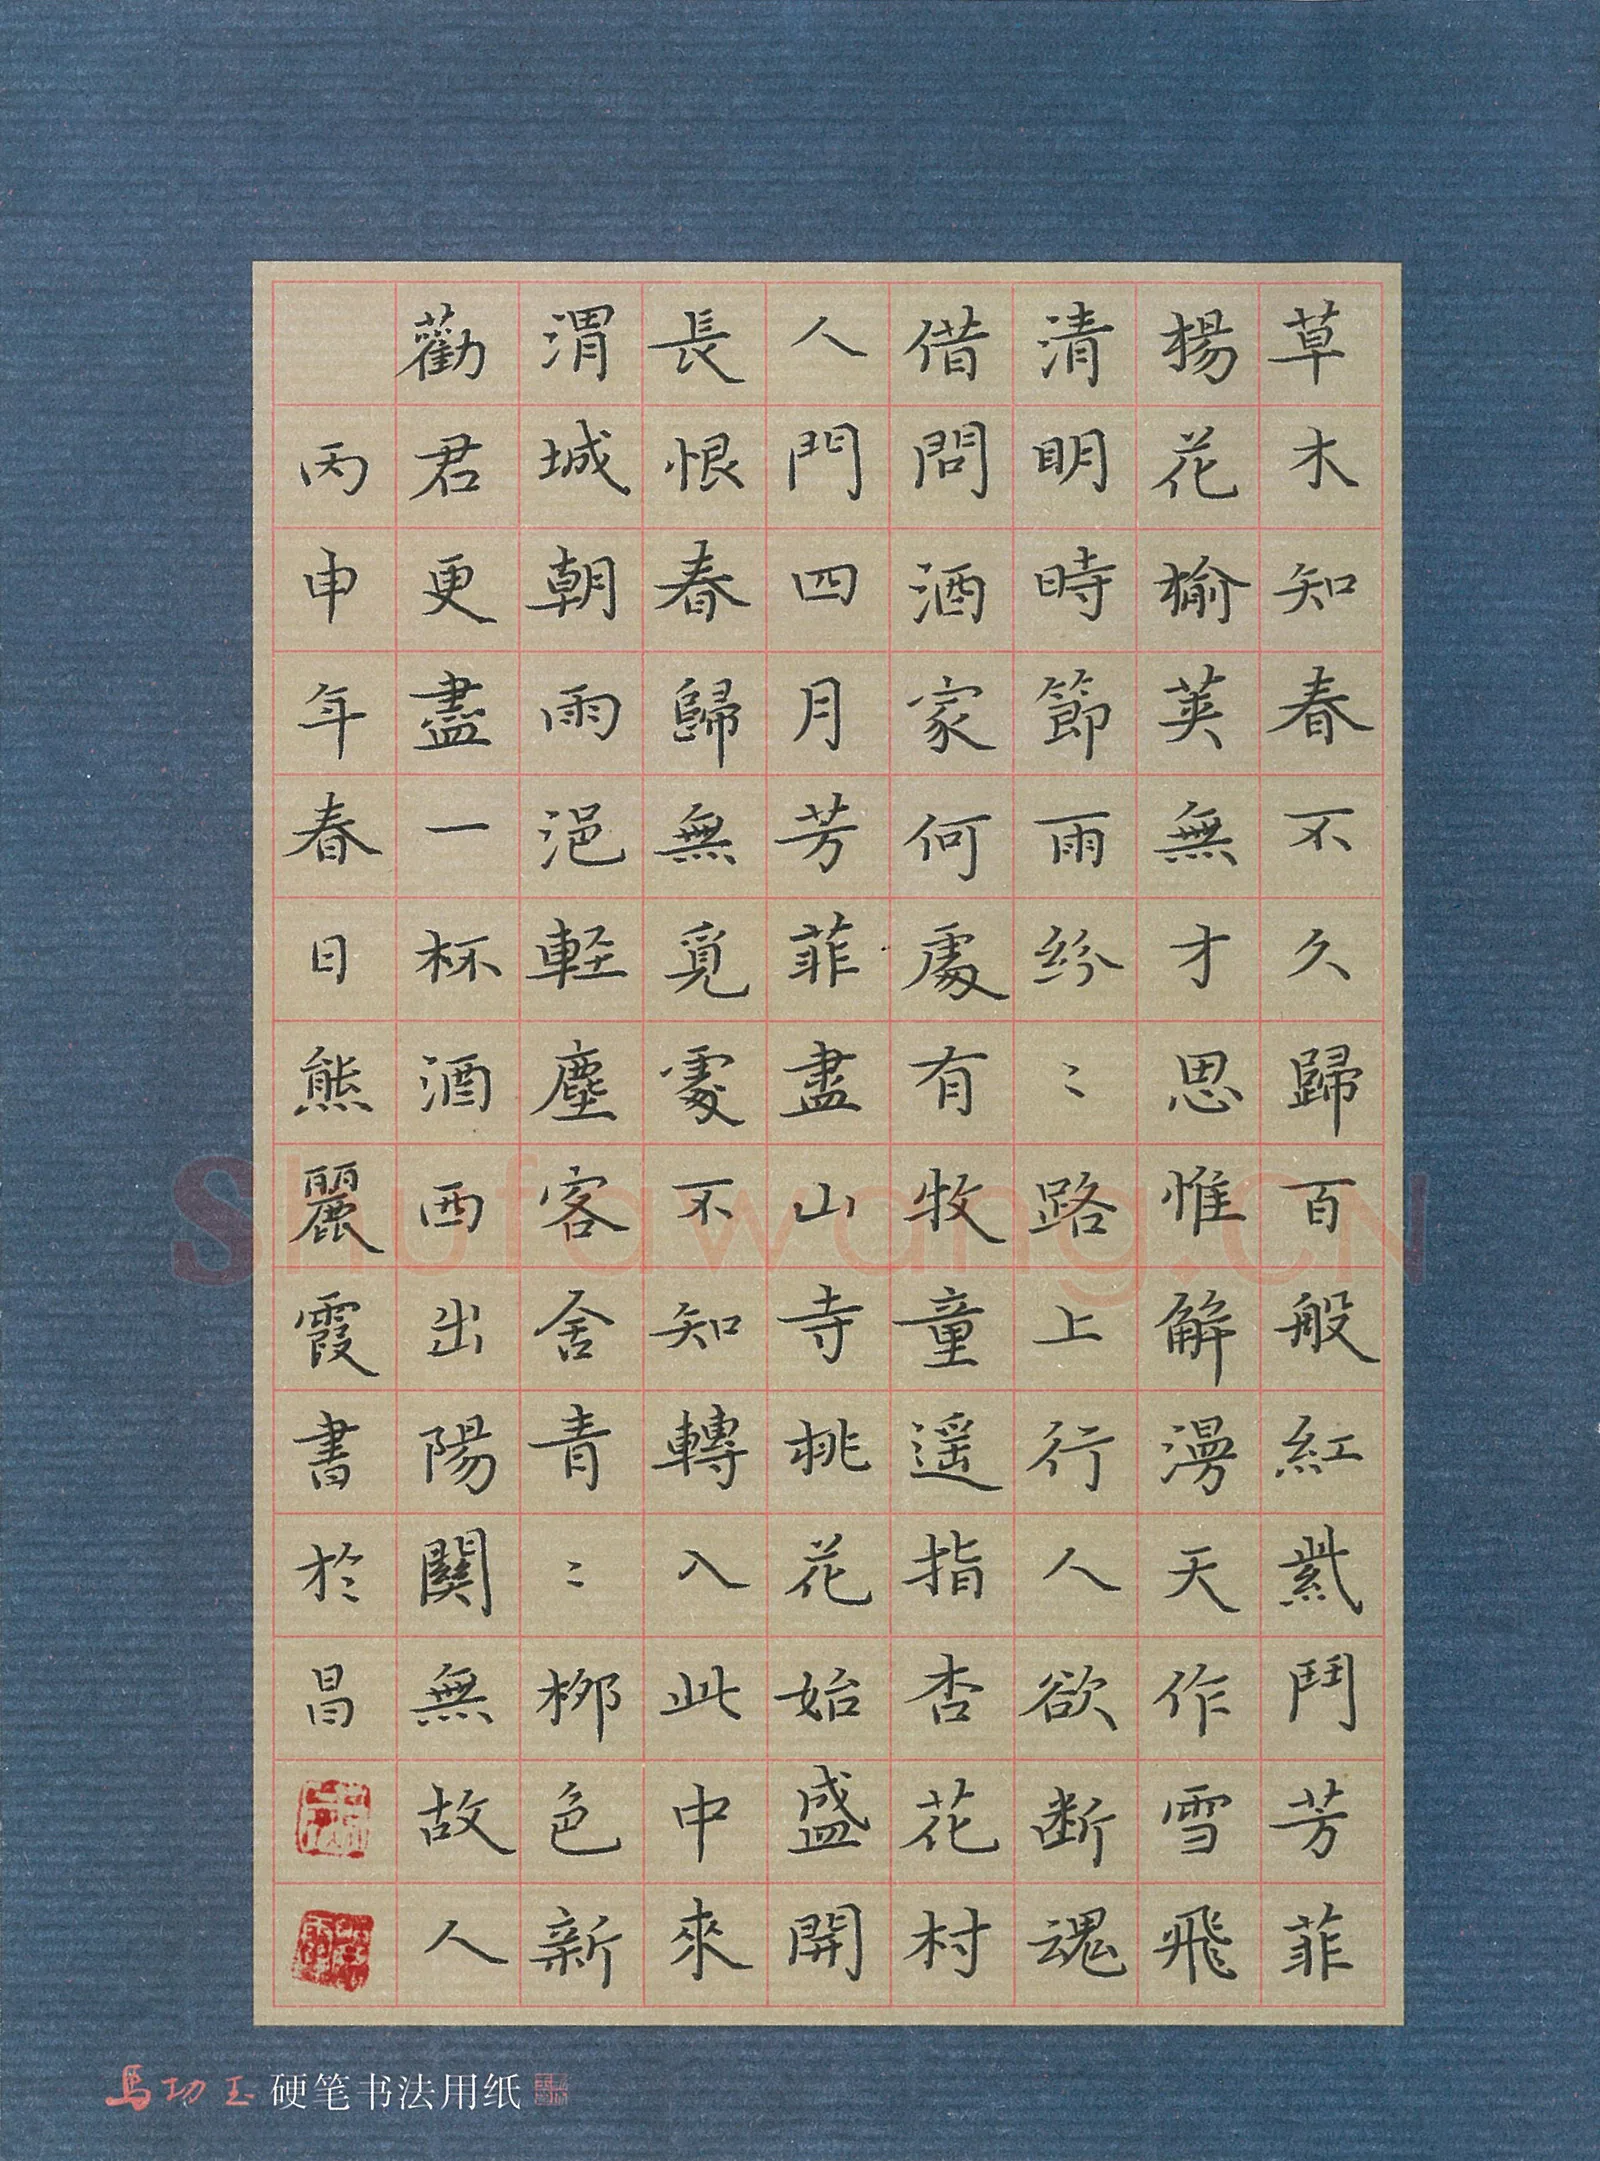 草木知春不久歸百般紅紫鬥芳菲
楊花榆莢無才思惟解漫天作雪飛
清明時節雨紛〻路上行人欲断魂
借問酒家何處有牧童遥指杏花村
人門四月芳菲盡山寺桃花始盛開
長恨春歸無覓處不知轉入此中來
渭城朝雨浥軽塵客舍青〻柳色新
勸君更盡一杯酒西出陽關無故人
丙申年春日熊麗霞書於昌
Shufawang.CN
馬功玉硬笔书法用纸